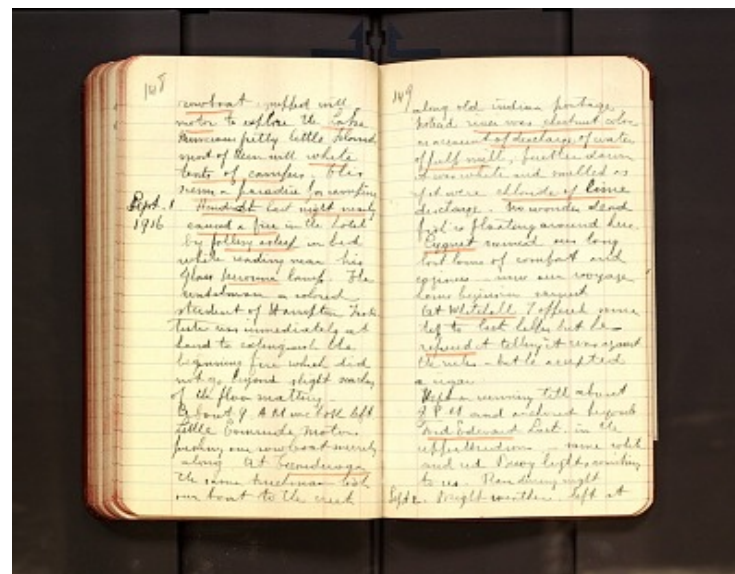 148
rowboat equipped with
motor to explore the Lake
Numerous pretty little Islands
most of them with white
tents of campers. This
seems a paradise for camping
Sept. 1
1916
Hendrick last night nearly
caused a fire in the hotel
by falling asleep in bed
while reading near his
glass kerosene lamp. The
a colored
student of Hampton Insti
tute was immediately at
hand to extinguish the
beginning fire which did
not go beyond slight
of the floor matting
About 9 A M we left
Little Evinrude motor
pushing our rowboat merrily
along. At Ticonderoga
the same truckman took
our boat to the creek
149
along old indian portage.
river was chestnut color
on account of discharge of water
of pulp mill, further down
it was white and smelled as
if it were chloride of lime
discharge. No wonder dead
fish is floating around here.
Cygnet seemed our long
lost home of comfort and
now our voyage
home begins in earnest
At Whitehall I offered some
tip to lock tender but he
refused it telling it was against
the rules - but he accepted
a cigar.
Kept on running till about
8 P M and anchored beyond
Fort Edward Lock. in the
some white
and red Buoy lights
to us. night
Sept 2. Bright weather. left at